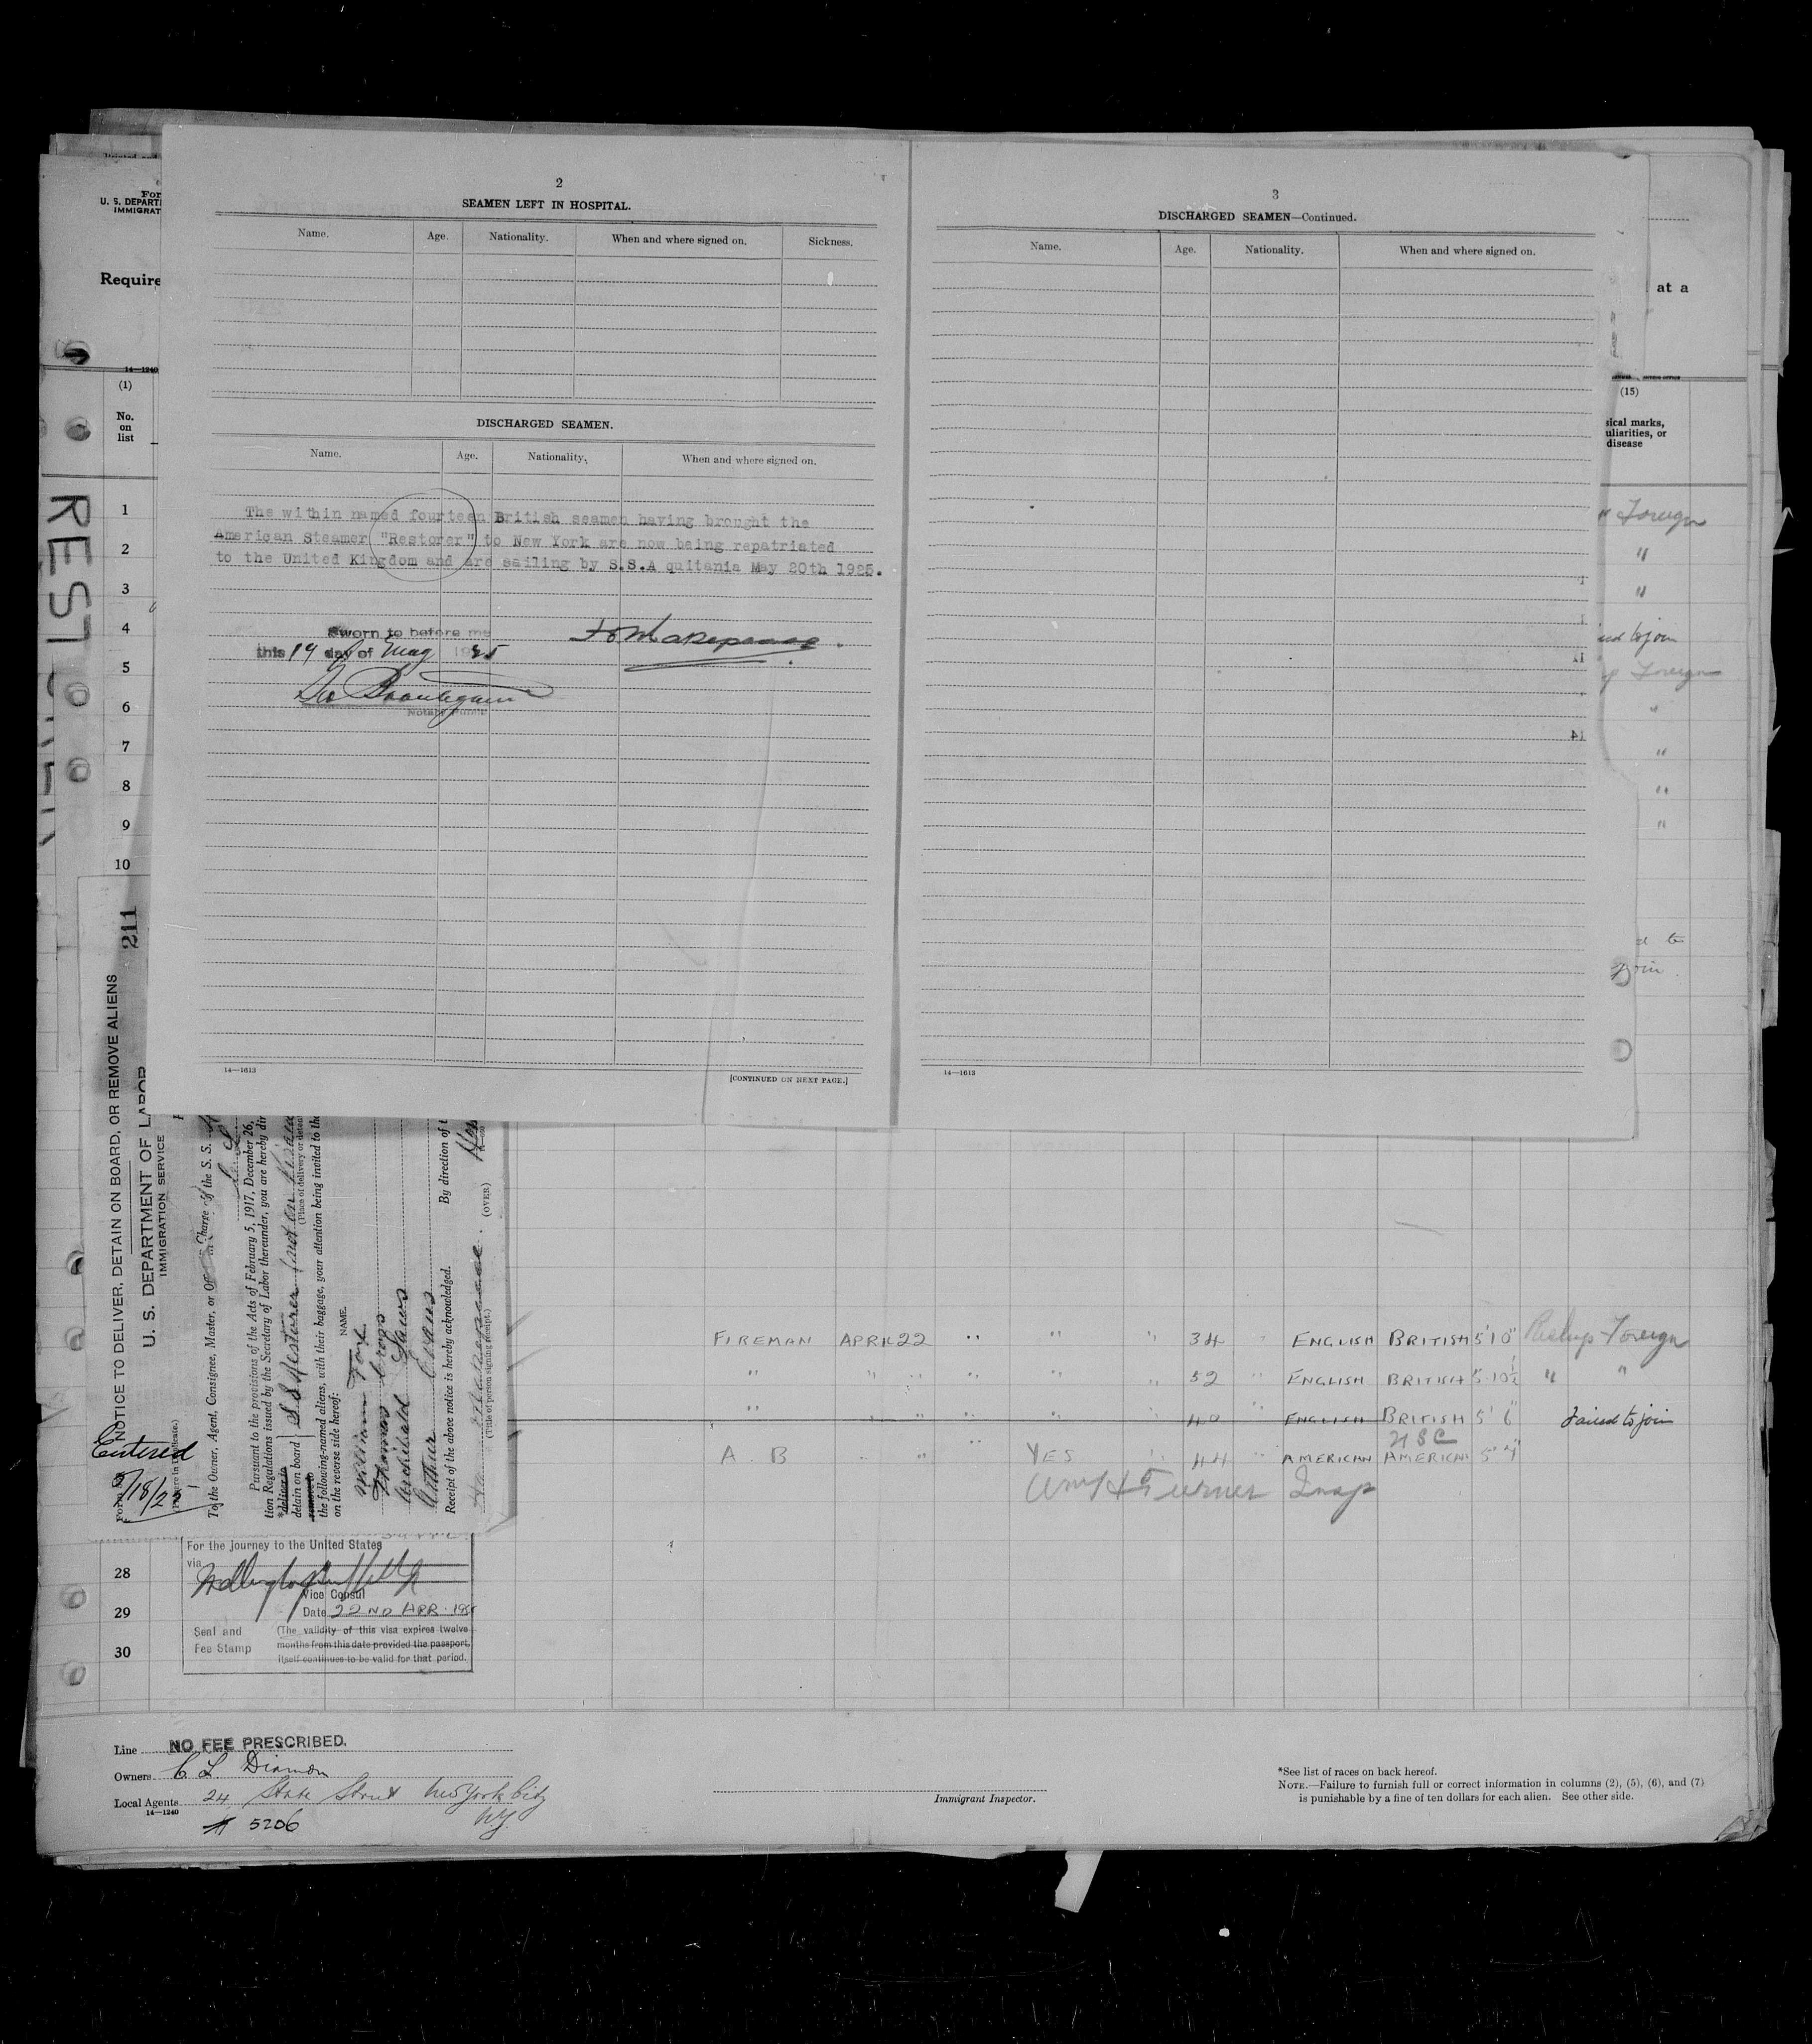 2
SEAMEN LEFT IN HOSPITAL.
Name. Age. Nationality. When and where signed on. Sickness.
DISCHARGED SEAMEN.
Name. Age. Nationality. When and where signed on.
The within named fourteen British seamen having brought the
American Steamer "Restorer" to New York are now being repatriated
to the United Kingdom and are sailing by S.S.A quitania May 20th 1925.
Sworn to before me
this 19 day of May 1925
Notary Public
14—1613
[CONTINUED ON NEXT PAGE.]
3
DISCHARGED SEAMEN—Continued.
Name. Age. Nationality. When and where signed on.
14—1613
For
U. S. DEPART
IMMIGRAT
Require
at a
14—1240
(1)
No.
on
list
(15)
sical marks,
uliarities, or
disease
REST
1
2
3
4
5
6
7
8
9
10
Foreign
"
"
ed to join
Foreign
"
"
"
"
d to
join
211
NOTICE TO DELIVER, DETAIN ON BOARD, OR REMOVE ALIENS
U. S. DEPARTMENT OF LABOR
IMMIGRATION SERVICE
To the Owner, Agent, Consignee, Master, or Officer in Charge of the S. S.
Pursuant to the provisions of the Acts of February 5, 1917, December 26,
tion Regulations issued by the Secretary of Labor thereunder, you are hereby dir
*deliver to
detain on board S.S. Restorer
remove to
(Place of delivery or deten
the following-named aliens, with their baggage, your attention being invited to the
on the reverse side hereof:
NAME.
William
Thomas
Archibald
Arthur Evans
Receipt of the above notice is hereby acknowledged.
By direction of
(Title of person signing receipt.)
(OVER)
Entered
5/18/25
FIREMAN APRIL 22 " " " 34 " ENGLISH BRITISH 5'10" Reship Foreign
" " " " " " 52 " ENGLISH BRITISH 5'10½ " "
" " " " " " 40 " ENGLISH BRITISH 5'6" Failed to join
USC
A B " " YES " 44 " AMERICAN AMERICAN 5'4"
Wm H Turner Insp
28
29
30
For the journey to the United States
via
Vice Consul
Date 22ND APR. 192
Seal and
Fee Stamp
(The validity of this visa expires twelve
months from this date provided the passport
itself continues to be valid for that period.
Line NO FEE PRESCRIBED.
Owners C L Dimon
Local Agents 24 State Street New York City
N.Y.
14—1240
# 5206
Immigrant Inspector.
*See list of races on back hereof.
NOTE.—Failure to furnish full or correct information in columns (2), (5), (6), and (7)
is punishable by a fine of ten dollars for each alien. See other side.